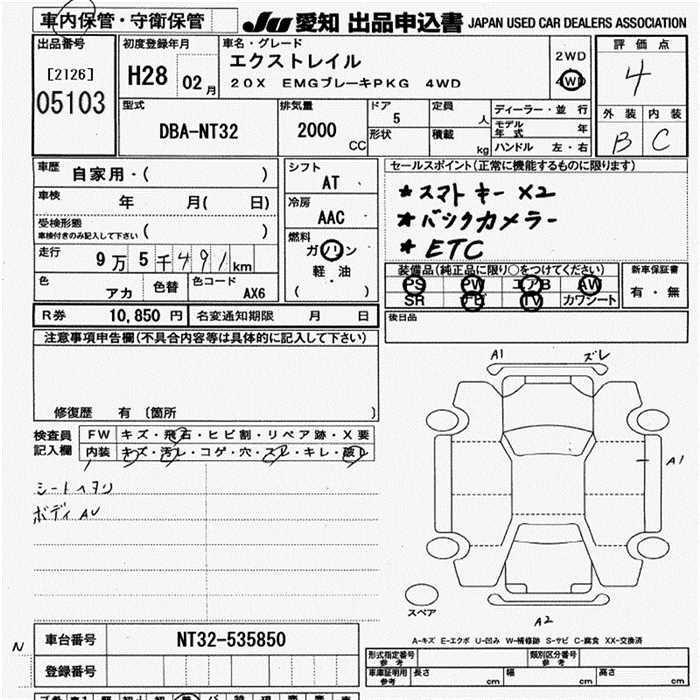 車内保管・守衛保管
JU 愛知 出品申込書 JAPAN USED CAR DEALERS ASSOCIATION
出品番号
[2126]
05103
初度登録年月
H28 02月
車名・グレード
エクストレイル
20X EMGブレーキPKG 4WD
2WD
4WD
評価点
4
外装 内装
B C
型式
DBA-NT32
排気量
2000
CC
ドア
5
形状
定員
人
積載
kg
ディーラー・並行
モデル年式 年
ハンドル 左・右
車歴 自家用・( )
車検 年 月( 日)
受検形態
車検付きのみ記入して下さい ( )
走行 9万5千491km
色 アカ 色替 色コード AX6
シフト
AT
冷房
AAC
燃料
ガソリン
軽・油
( )
セールスポイント(正常に機能するものに限ります)
*スマトキーX2
*バックカメラー
*ETC
装備品(純正品に限り○をつけてください)
PS PW エアB AW
SR ナビ TV カワシート
新車保証書
有・無
R券 10,850円 名変通知期限 月 日
後日品
注意事項申告欄(不具合内容等は具体的に記入して下さい)
修復歴 有 〔箇所 〕
検査員記入欄
FW キズ・飛石・ヒビ割・リペア跡・X要
内装 キズ・汚レ・コゲ・穴・スレ・キレ・破レ
シートヘタリ
ボディAU
A1 ズレ
A1
スペア
A2
A-キズ E-エクボ U-凹み W-補修跡 S-サビ C-腐食 XX-交換済
N
車台番号 NT32-535850
登録番号
形式指定番号
参考
類別区分番号
参考
車庫証明用
参考
長さ cm 幅 cm 高さ cm